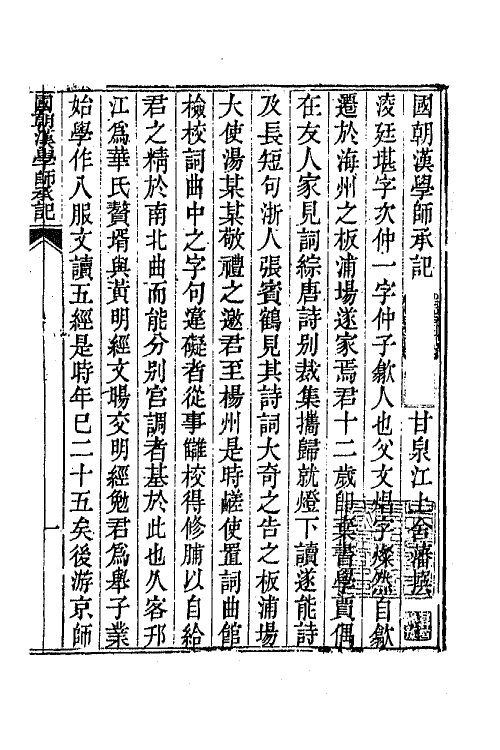 國朝漢學師承記
甘泉江上舍藩纂
淩廷堪字次仲一字仲子歙人也父文焻字燦然自歙
遷於海州之板浦場遂家焉君十二歲卽棄書學賈偶
在友人家見詞綜唐詩別裁集攜歸就燈下讀遂能詩
及長短句浙人張賓鶴見其詩詞大奇之告之板浦場
大使湯某某敬禮之邀君至楊州是時鹺使置詞曲館
檢校詞曲中之字句違礙者從事讎校得修脯以自給
君之精於南北曲而能分別宮調者基於此也久客邗
江為華氏贅壻與黃明經文暘交明經勉君為舉子業
始學作八股文讀五經是時年已二十五矣後游京師
國朝漢學師承記
一